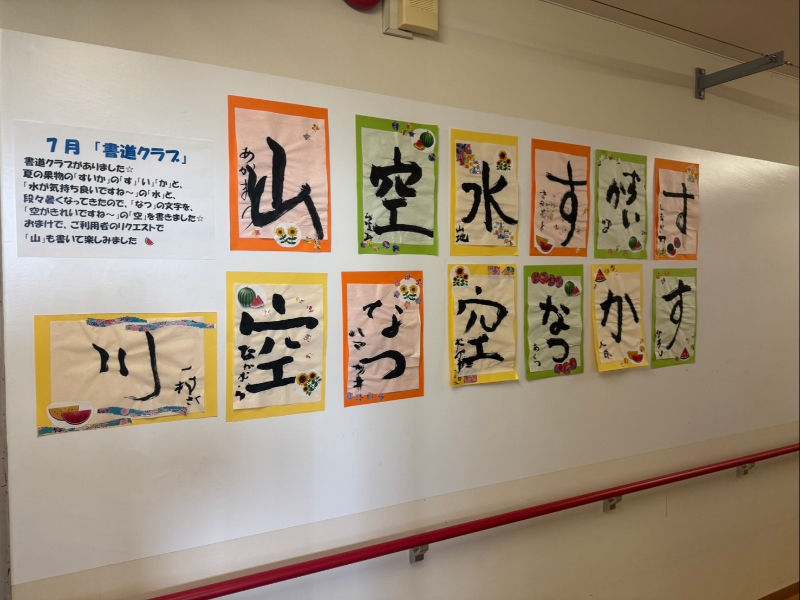 7月 「書道クラブ」
書道クラブがありました☆
夏の果物の「すいか」の「す」「い」「か」と、
「水が気持ち良いですね～」の「水」と、
段々暑くなってきたので、「なつ」の文字を、
「空がきれいですね～」の「空」を書きました☆
おまけで、ご利用者のリクエストで
「山」も書いて楽しみました
山
空
水
山地
す
すいか
す
川
空
なかむら
なつ
空
なつ
か
す